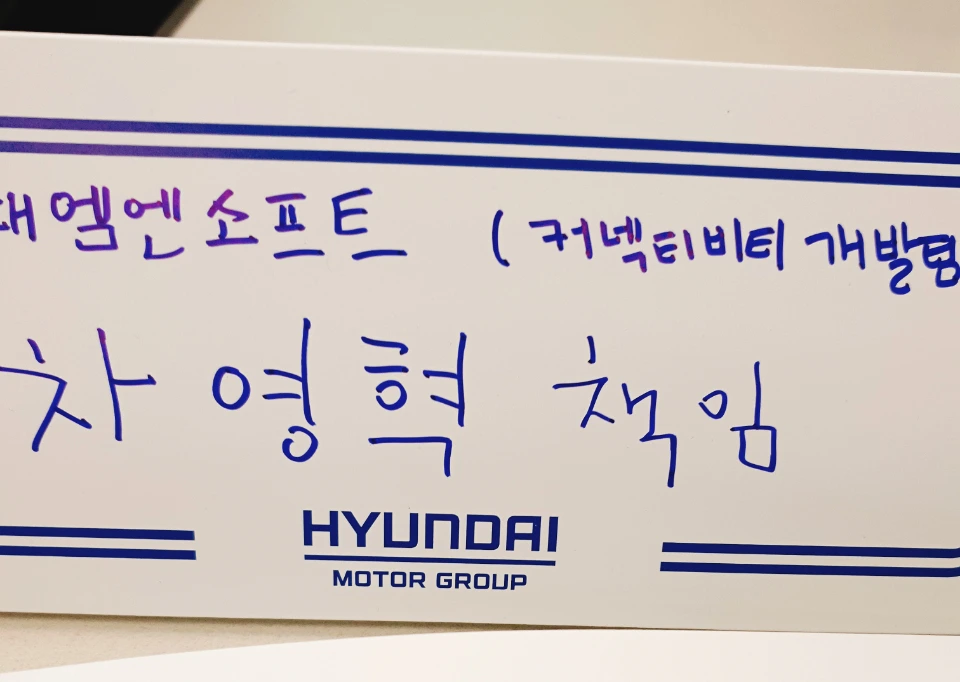 대엠엔소프트 (커넥티비티 개발팀
차영혁 책임
HYUNDAI
MOTOR GROUP